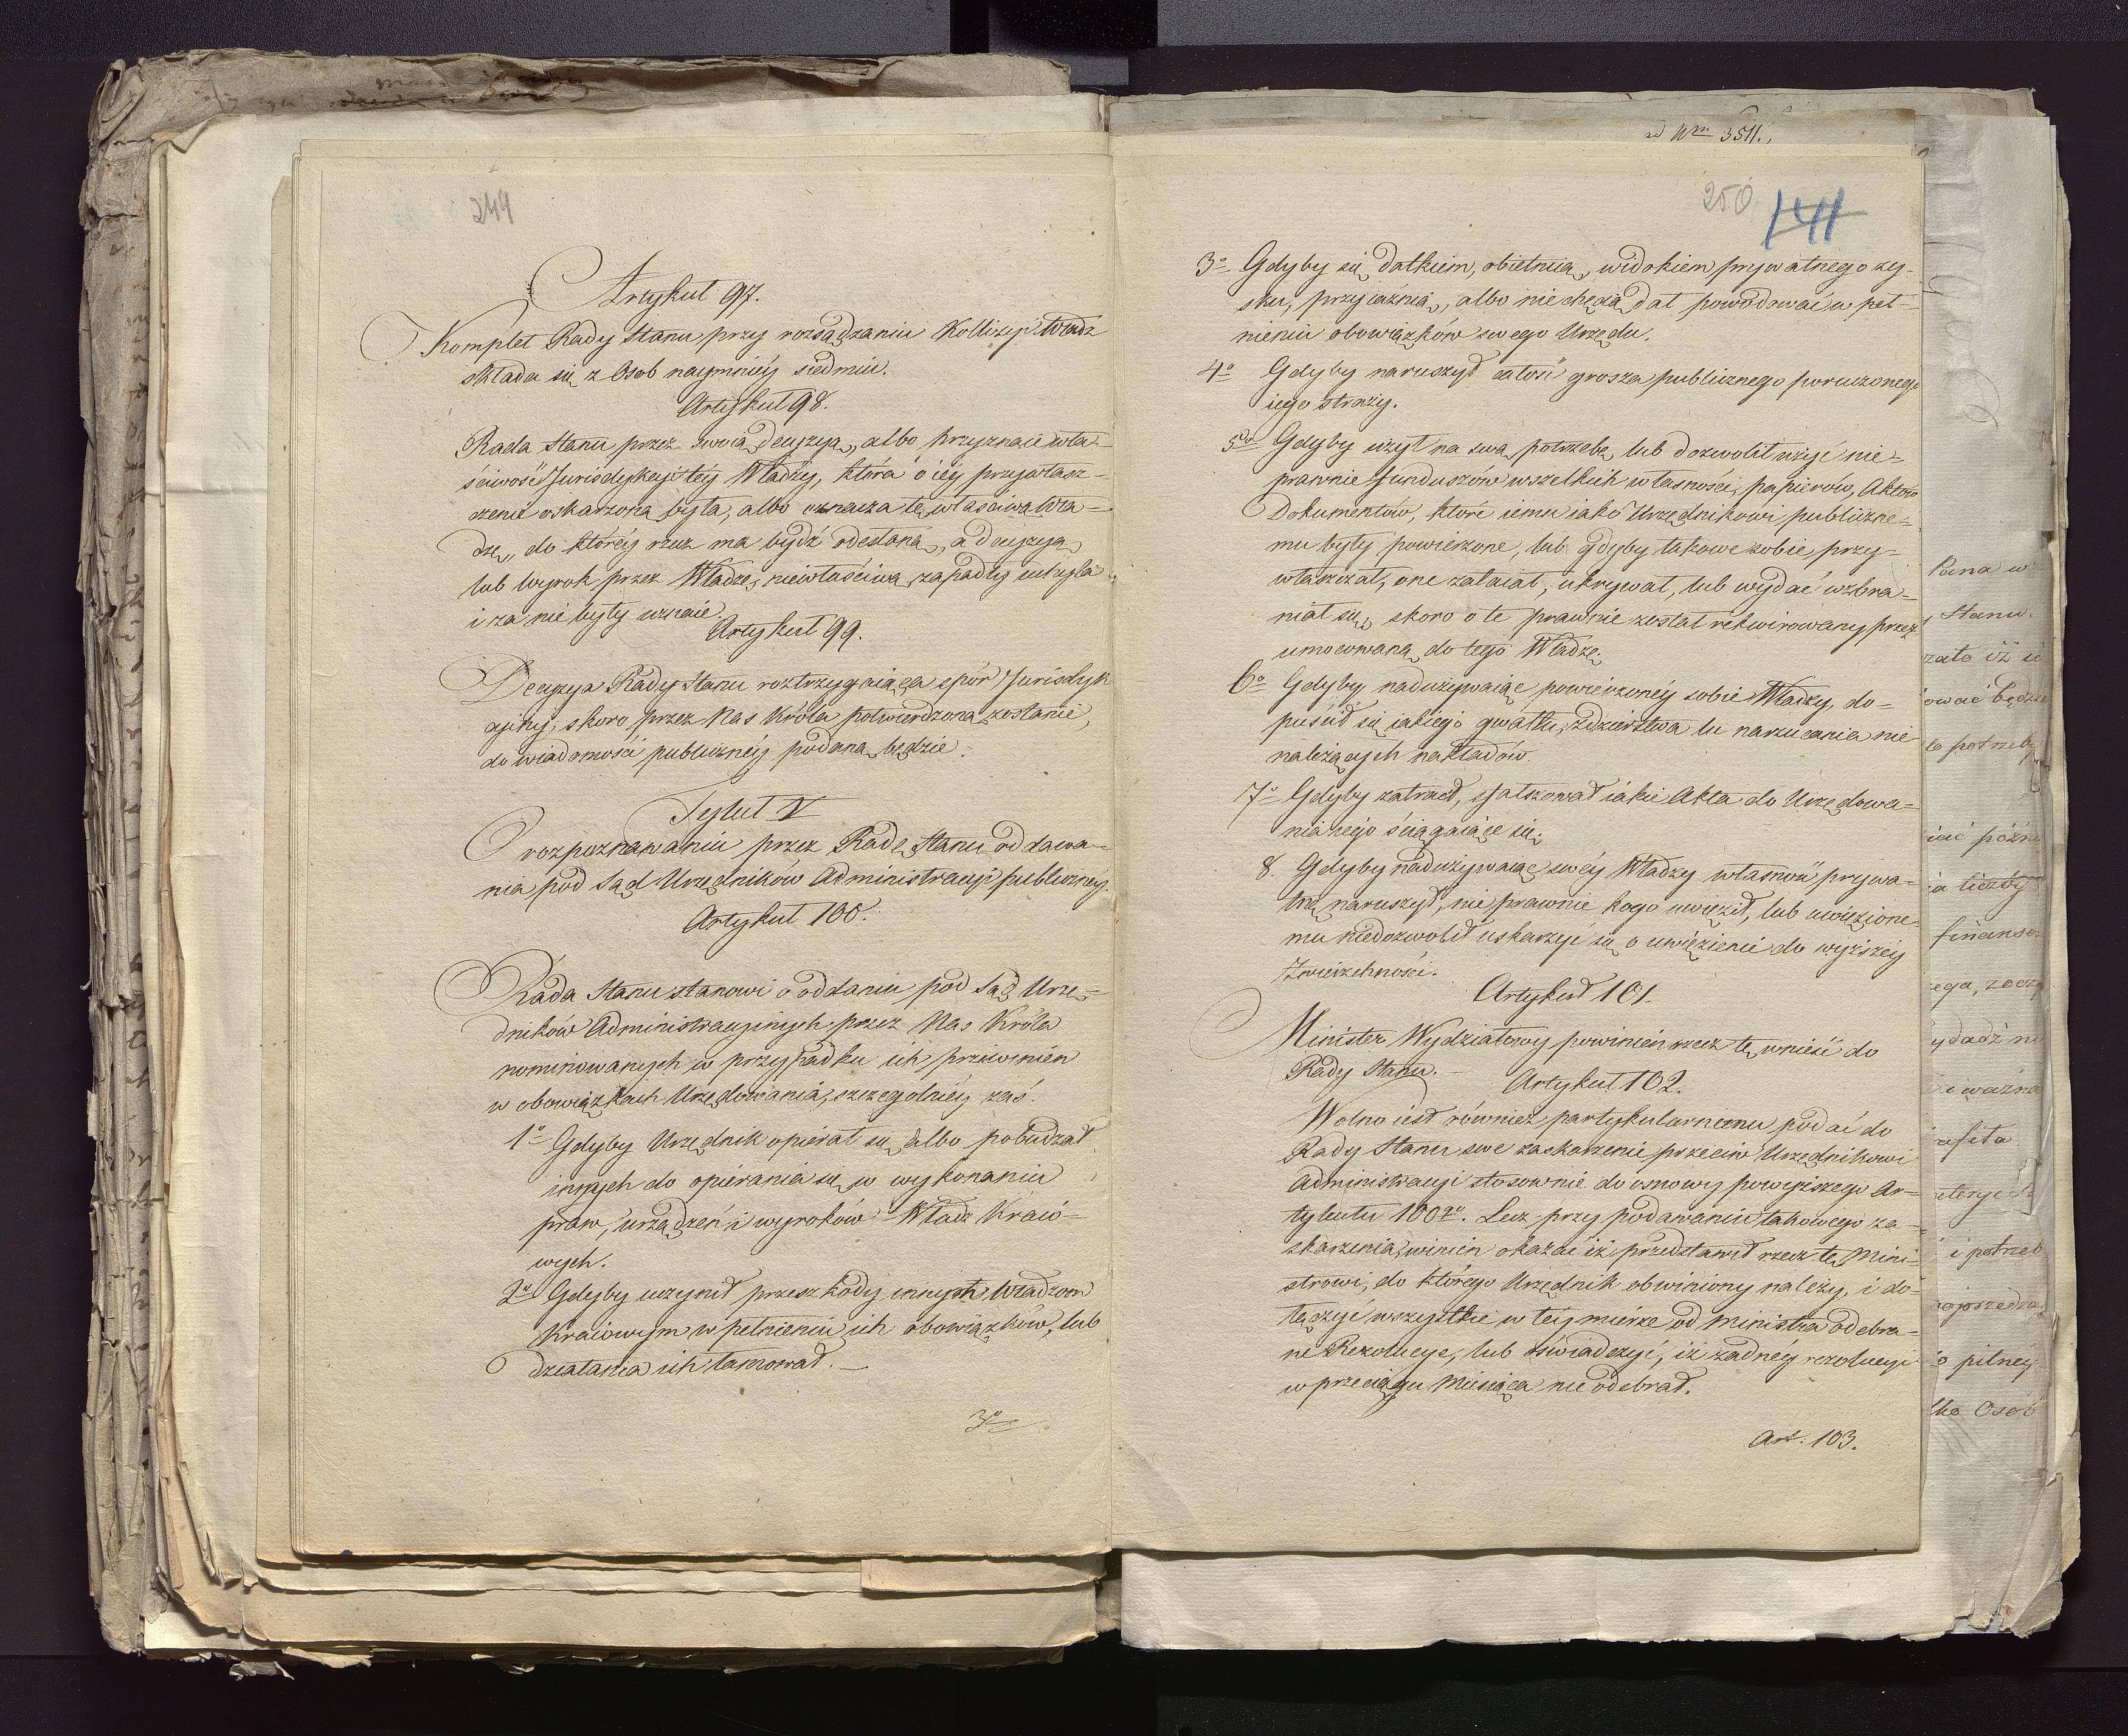 249
Artykuł 97.
Komplet Rady Stanu przy rozsądzaniu Kollizyi Władz
składa się z Osob naymniéy siedmiu.
Artykuł 98.
Rada Stanu przez swoią decyzyą, albo przyznaie wła-
ściwość Jurisdykcyi téy Władzy, która o iéy przywłasz-
czenie oskarżoną była, albo oznacza tę właściwą Wła-
dzę, do któréy rzecz ma bydź odesłaną, a decyzyą
lub wyrok przez Władzę niewłaściwą zapadły uchyla
i za nie były uznaie.
Artykuł 99.
Decyzya Rady Stanu roztrzygaiąca spór Jurisdyk
cyiny, skoro przez Nas Króla potwierdzona zostanie,
do wiadomości publicznéy podana będzie.
Tytuł V
O rozpoznawaniu przez Radę Stanu oddawa-
nia pod Sąd Urzędników Administracyi publiczney.
Artykuł 100.
Rada Stanu stanowi o oddaniu pod Sąd Urzę-
dników Administracyinych przez Nas Króla
nominowanych w przypadku ich przewinień
w obowiązkach Urzędowania, szczegolniéy zaś.
1o Gdyby Urzędnik opiérał się albo pobudzał
innych do opiérania się w wykonaniu
praw, urządzeń i wyroków Władz Kraio-
wych.
2o Gdyby uczynił przeszkody innym Władzom
Kraiowym w pełnieniu ich obowiązków, lub
działania ich tamował.
3o
ad Nrm 3511.
250 141
3o Gdyby się datkiem, obietnicą, widokiem prywatnego zy-
sku, przyiaźnią, albo niechęcią dał powodować w peł-
nieniu obowiązków swego Urzędu.
4o Gdyby naruszył całość grosza publicznego poruczonego
iego straży.
5o Gdyby użył na swą potrzebę, lub dozwolił użyć nie-
prawnie funduszów wszelkich własności, papierów, Aktów
Dokumentów, które iemu iako Urzędnikowi publiczne-
mu były powierzone, lub gdyby takowe sobie przy-
właszczał, one zataiał, ukrywał, lub wydać wzbra-
niał się, skoro o te prawnie został rekwirowany przez
umocowaną do tego Władzę.
6o Gdyby nadużywaiąc powierzonéy sobie Władzy, do-
puścił się iakiego gwałtu, zdzierstwa lu narzucania nie
należących nakładów.
7o Gdyby zatracił, sfałszował iakie Akta do Urzędowa-
nia iego ściągaiące się.
8. Gdyby nadużywaiąc swéy Władzy własność prywa-
tną naruszył, nie prawnie kogo uwięził, lub uwięzione-
mu niedozwolił uskarżyć się o uwięzienie do wyższéy
Zwierzchności.
Artykuł 101.
Minister Wydziałowy powinien rzecz tę wnieść do
Rady Stanu.
Artykuł 102.
Wolno iest również partykularnemu podać do
Rady Stanu swe zaskarżenie przeciw Urzędnikowi
Administracyi stosownie do osnowy powyższego Ar-
tykułu 100go. Lecz przy podawaniu takowego za-
skarżenia, winien okazać iż przedstawił rzecz tę Mini-
strowi, do którego Urzędnik obwiniony należy, i do-
łączyć wszystkie w téy mierze od Ministra odebra-
ne Rezolucye, lub oświadczyć, iż żadney rezolucyi
w przeciągu Miesiąca nie odebrał.
Art: 103.